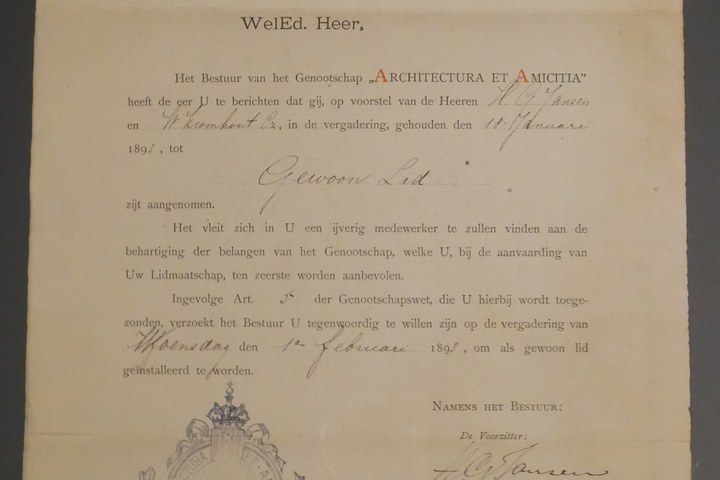 WelEd. Heer,
Het Bestuur van het Genootschap „ARCHITECTURA ET AMICITIA”
heeft de eer U te berichten dat gij, op voorstel van de Heeren H. G. Jansen
en W. Kromhout Cz, in de vergadering, gehouden den 18 Januari
1893, tot
Gewoon Lid
zijt aangenomen.
Het vleit zich in U een ijverig medewerker te zullen vinden aan de
behartiging der belangen van het Genootschap, welke U, bij de aanvaarding van
Uw Lidmaatschap, ten zeerste worden aanbevolen.
Ingevolge Art. 5 der Genootschapswet, die U hierbij wordt toege-
zonden, verzoekt het Bestuur U tegenwoordig te willen zijn op de vergadering van
Woensdag den 1en februari 1893, om als gewoon lid
geïnstalleerd te worden.
NAMENS HET BESTUUR:
De Voorzitter:
H G Jansen